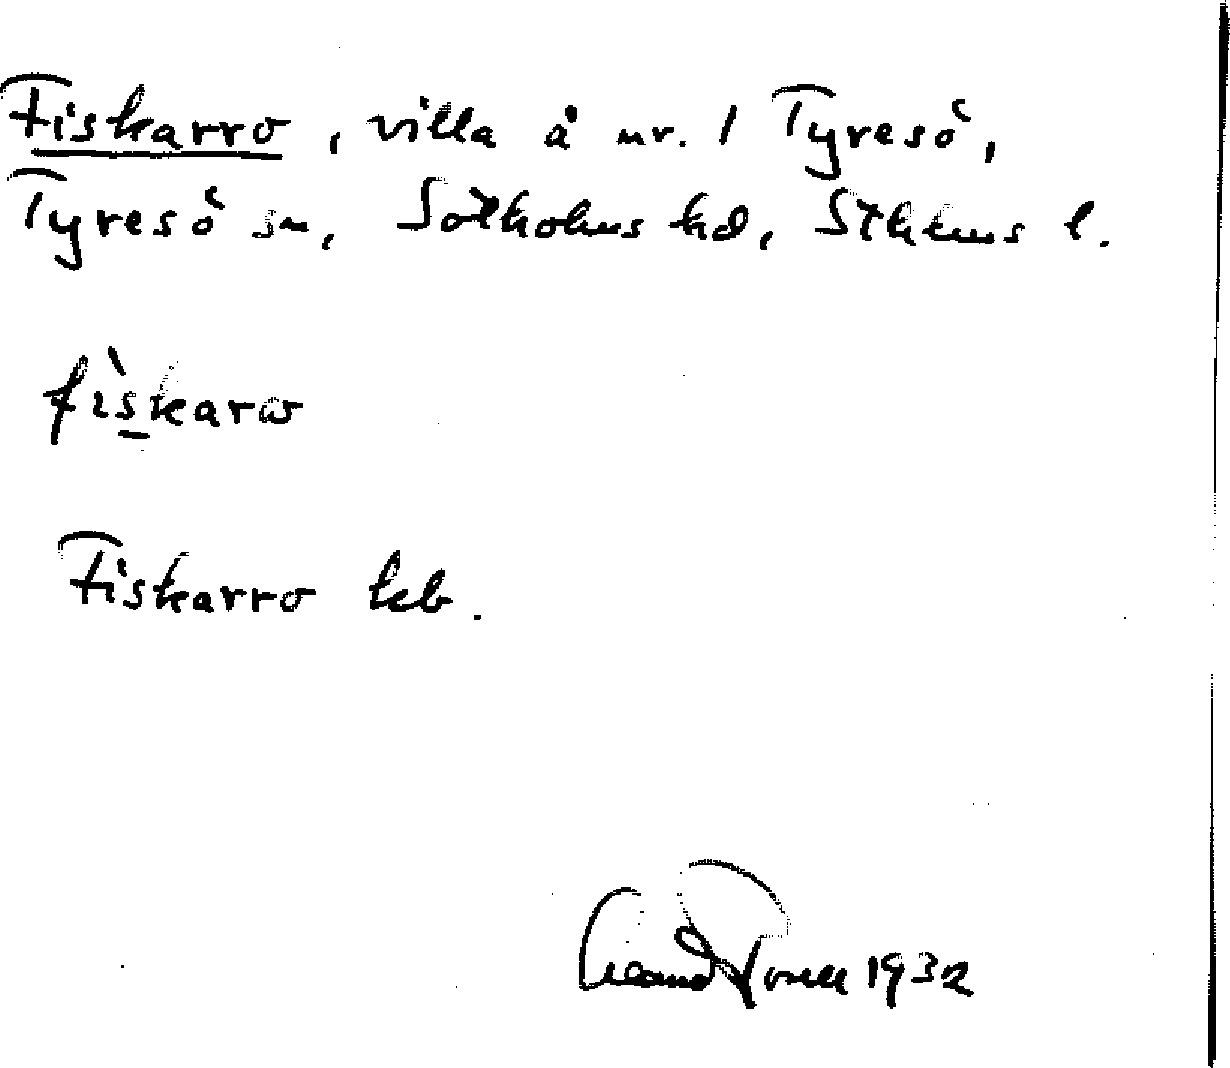 Fiskarro, villa å nr. 1 Tyresö,
Tyresö sn, Sotholms hd, Sthlms l.
fìskarω
Fiskarro kb.
1932